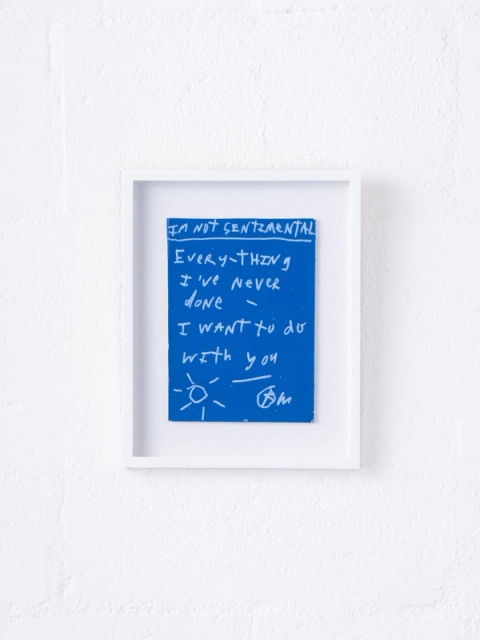 IM NOT SENTIMENTAL
EVERY-THING
I'VE NEVER
dONE –
I WANT to do
With you